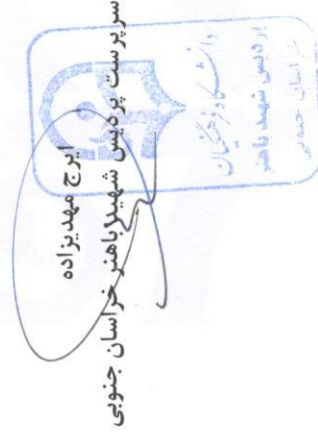 ایرج مهدیزاده
سرپرست پردیس شهید باهنر خراسان جنوبی
دانشگاه فرهنگیان
پردیس شهید باهنر
خراسان جنوبی